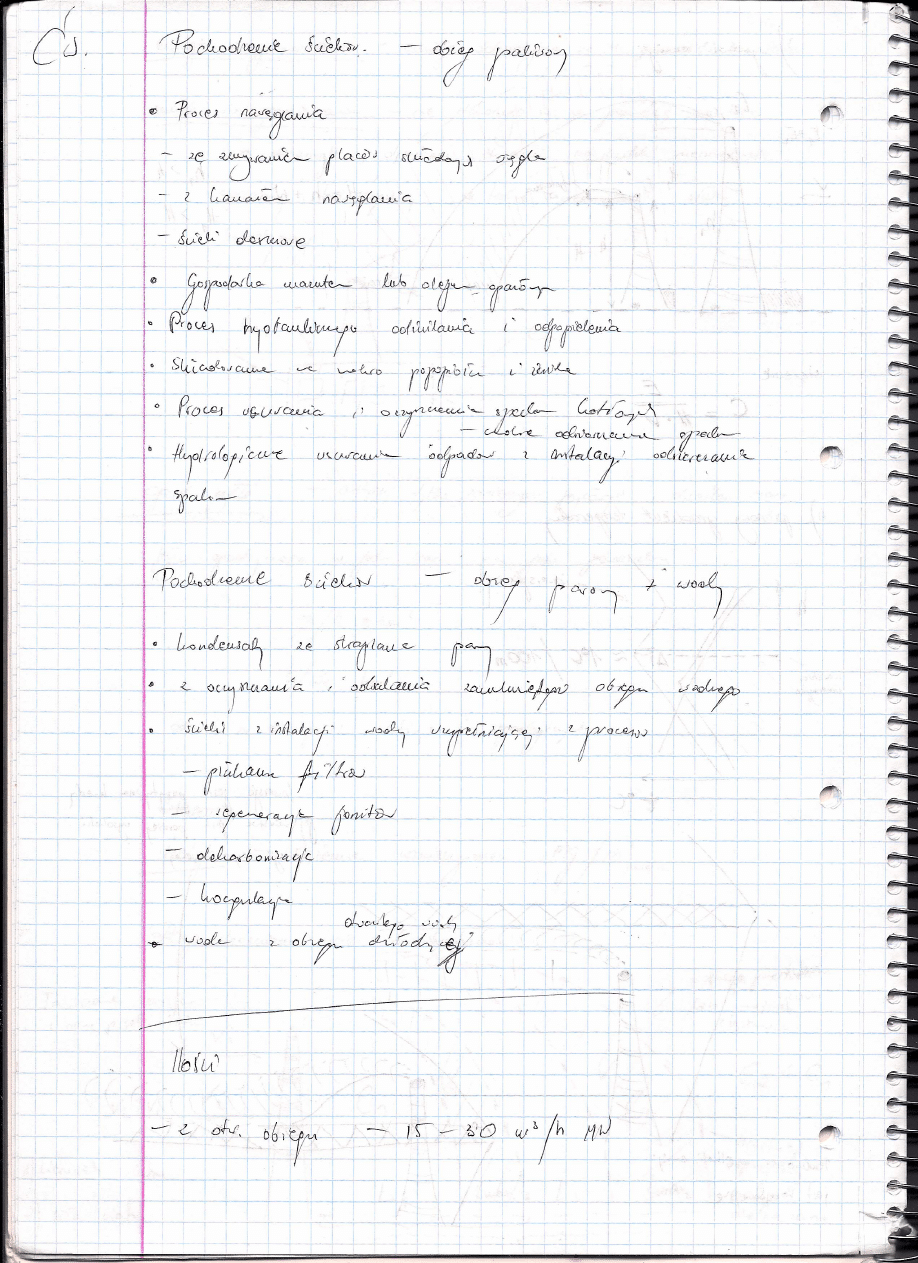 Ćw.
Pochodzenie ścieków. — obieg paliwowy
• Proces nawęglania
– ze zmywania placów składowych węgla
– z kanałów nawęglania
– ścieki deszczowe
• Gospodarka mazutem lub olejem opałowym
• Proces hydraulicznego odżużlania i odpopielania
• Składowanie na mokro popiołu i żużla
• Proces usuwania i oczyszczania spalin kotłowych
– mokre odsiarczanie spalin
• Hydrologiczne usuwanie odpadów z instalacji odsiarczania
spalin
Pochodzenie ścieków — obieg parowy + wody
• kondensaty ze skraplania pary
• z oczyszczania i odsalania zamkniętego obiegu wodnego
• ścieki z instalacji wody uzupełniającej z procesów
– płukania filtrów
– regeneracja jonitów
– dekarbonizacja
– koagulacja
otwartego wody
• woda z obiegu chłodzącej
Ilości
– z otw. obiegu – 15 – 30 m³/h MW